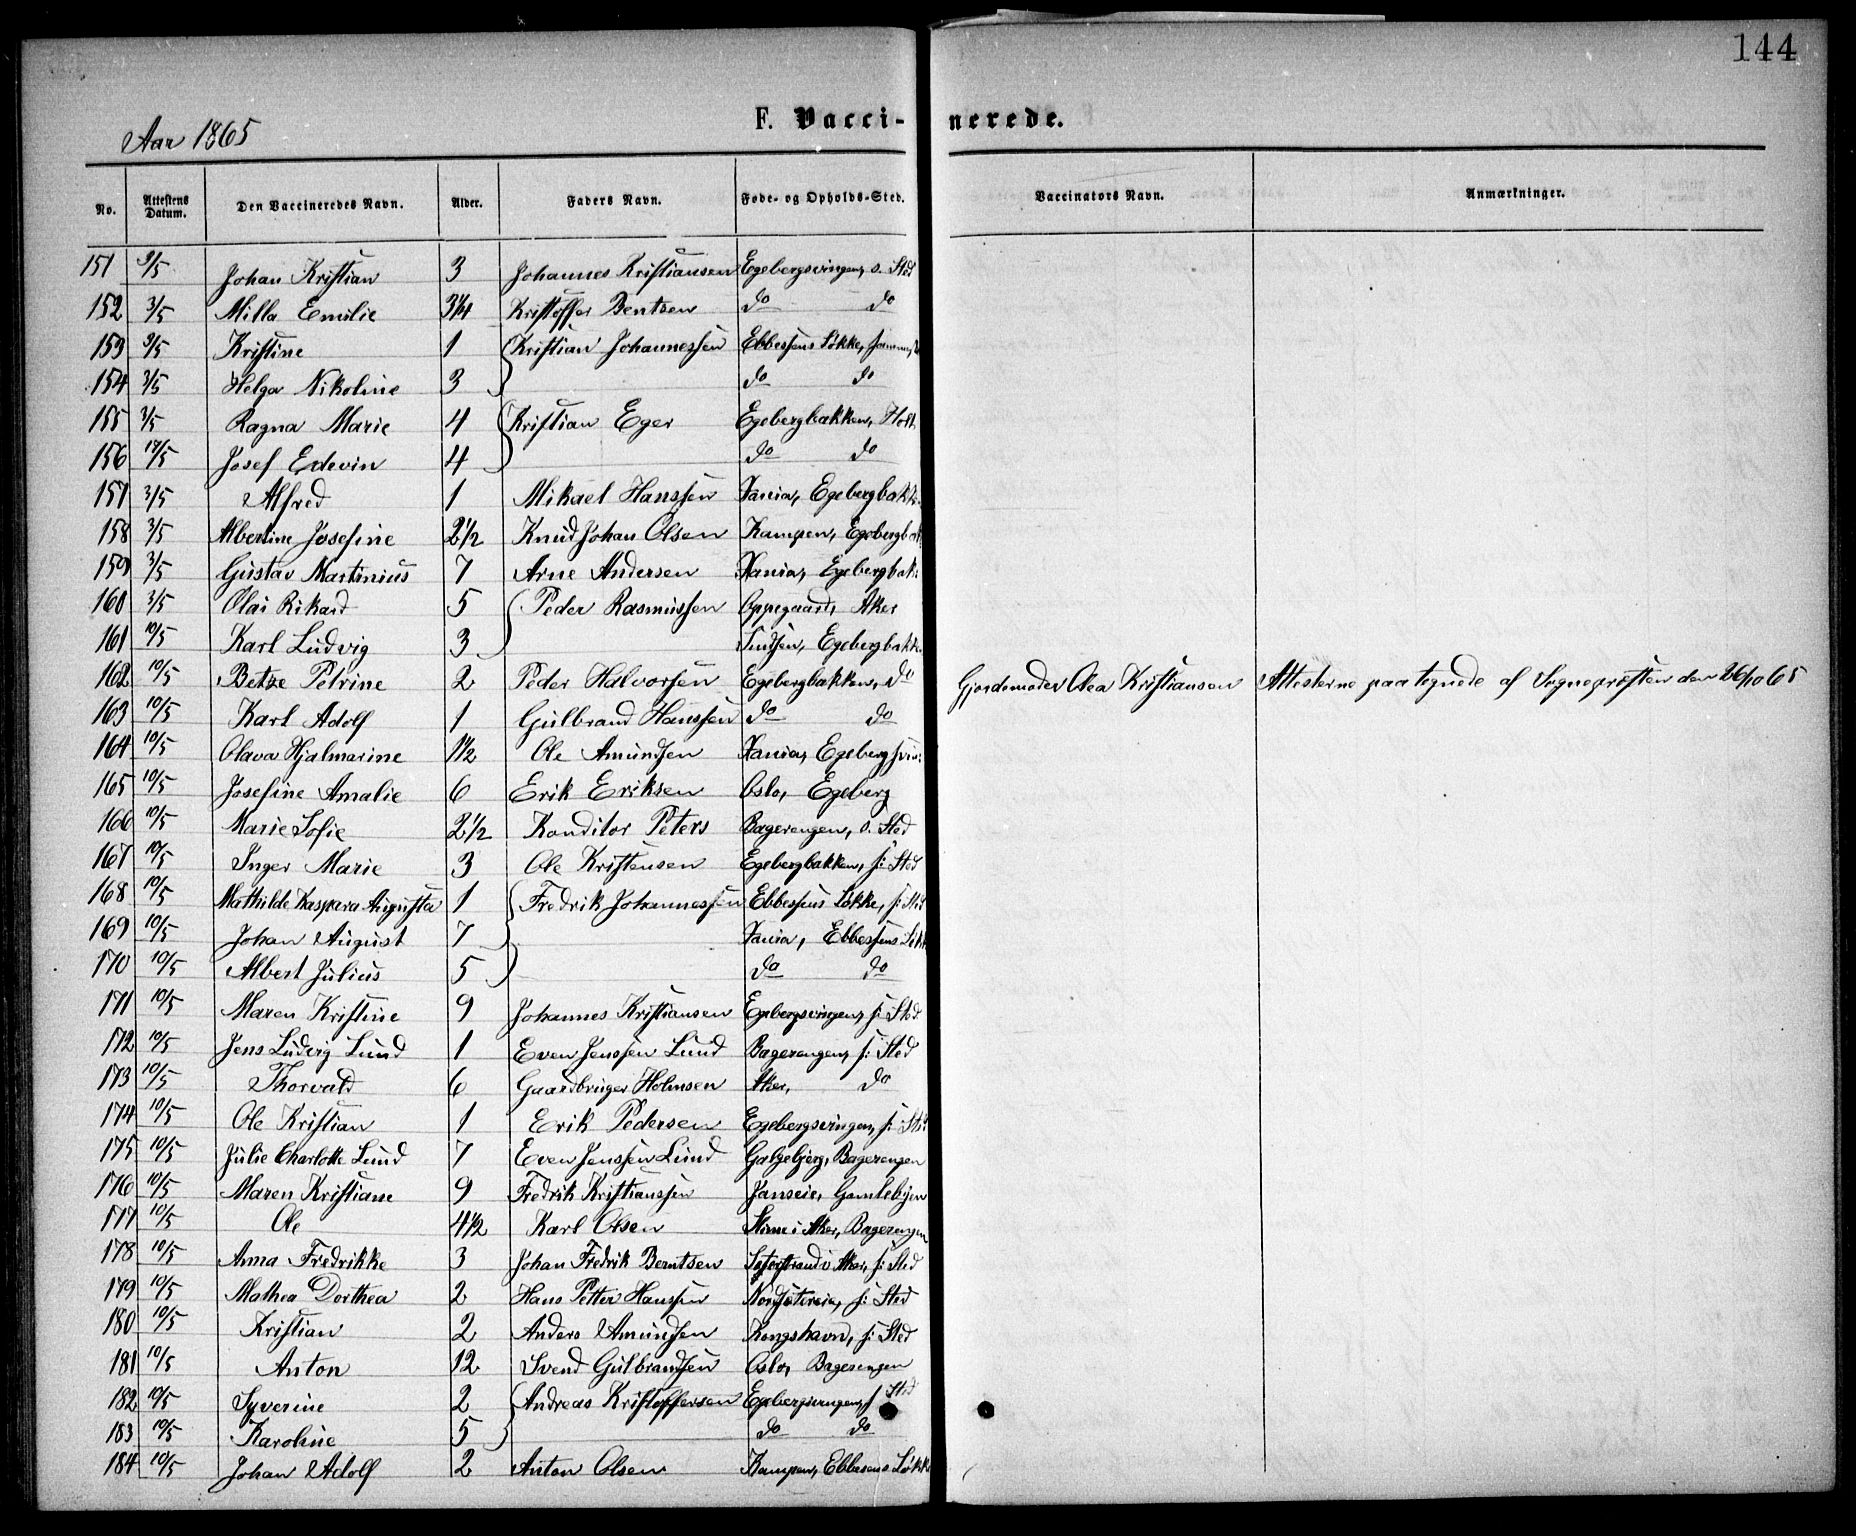 144
Aar 1865
F. Vaccinerede.
No. Attestens Datum. Den Vaccineredes Navn. Alder. Faders Navn. Føde- og Opholds-Sted. Vaccinators Navn. Anmærkninger.
151 3/5 Johan Kristian 3 Johannes Kristiansen Egebergsvingen, s. Sted
152 3/5 Milla Emilie 3 1/4 Kristoffer Bentsen do do
153 3/5 Kristine 1 Kristian Johannessen Ebbesens Løkke,
154 3/5 Helga Nikoline 3 do do
155 3/5 Ragna Marie 4 Kristian Eger Egebergbakken,
156 18/5 Josef Edevin 4 do do
157 3/5 Alfred 1 Mikael Hanssen Xania, Egebergbakk
158 3/5 Albertine Josefine 2 1/2 Knud Johan Olsen Kampen, Egebergbak
159 3/5 Gustav Martinius 7 Arne Andersen Xania, Egebergbak
160 3/5 Olai Rikard 5 Peder Rasmussen Oppegaard, Aker
161 10/5 Karl Ludvig 3 Egebergbakke
162 10/5 Betze Petrine 2 Peder Halvorsen Egebergbakken, do Gjordemoder Olea Kristiansen Attesterne paategnede af Sognepræsten den 26/10 65
163 10/5 Karl Adolf 1 Gulbrand Hanssen do do
164 10/5 Olava Hjalmarine 1 1/2 Ole Amundsen Xania, Egebergsvin:
165 10/5 Josefine Amalie 6 Erik Eriksen Oslo, Egeberg
166 10/5 Marie Sofie 2 1/2 Konditor Peters Bagerengen, s. Sted
167 10/5 Inger Marie 3 Ole Kristensen Egebergbakken, s: Sted
168 10/5 Mathilde Kaspara Augusta 1 Fredrik Johannessen Ebbessens Løkke, s: Sted
169 10/5 Johan August 7 Xania, Ebbessens Løkk
170 10/5 Albert Julius 5 do do
171 10/5 Maren Kristine 9 Johannes Kristiansen Egebergsvingen, s: Sted
172 10/5 Jens Ludvig Lund 1 Even Jenssen Lund Bagerengen, s: Sted
173 10/5 Thorvald 6 Gaardbruger Holmsen Aker, do
174 10/5 Ole Kristian 1 Erik Pedersen Egebergsvingen, s: Sted
175 10/5 Julie Charlotte Lund 7 Even Jenssen Lund Galgebjerg, Bagerengen
176 10/5 Maren Kristiane 9 Fredrik Kristianssen Gamlebyen
177 10/5 Ole 4 1/2 Karl Olsen i Aker, Bagerengen
178 10/5 Anna Fredrikke 3 Johan Fredrik Berntsen i Aker, s: Sted
179 10/5 Mathea Dorthea 2 Hans Petter Hanssen s: Sted
180 10/5 Kristian 2 Anders Amundsen Kongshavn, s: Sted
181 10/5 Anton 12 Svend Gulbrandsen Oslo, Bagerengen
182 10/5 Syverine 2 Andreas Kristoffersen Egebergsvingen, s: Sted
183 10/5 Karoline 5 do do
184 10/5 Johan Adolf 2 Anton Olsen Kampen, Ebbesens Løkke